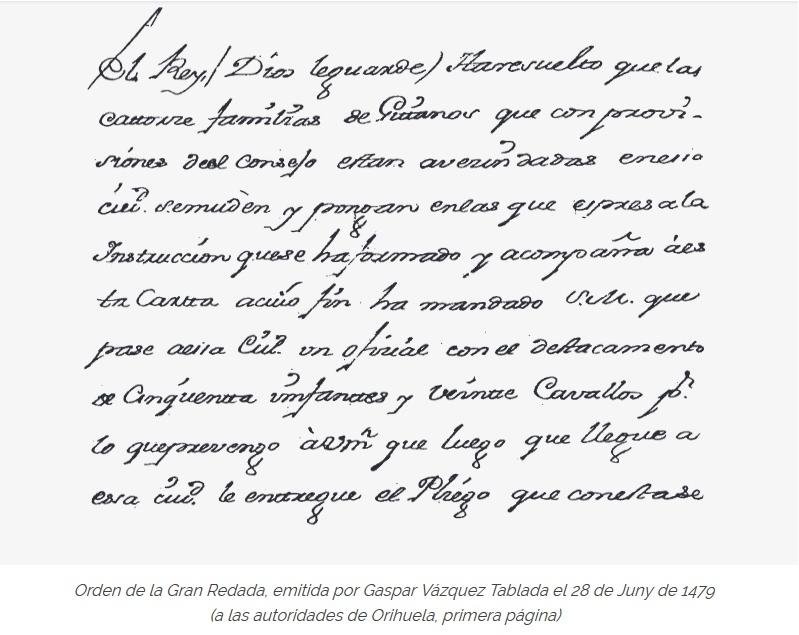 El Rey, (Dios leguarde) Haresuelto que las
catorze familias de Gitanos que con provi-
siones del Consejo estan avezindadas enesa
ciud. semuden y pongan enlas que espresa la
Instruccion quese ha formado y acompaña àes
ta Carta acuio fin ha mandado S.M. que
pase aesa Ciud. un ofizial con el destacamento
de Cinquenta ynfantes y veinte Cavallos pr.
lo queprevengo àVm que luego que llegue a
esa ciud. le entregue el Pliego que conesta se
Orden de la Gran Redada, emitida por Gaspar Vázquez Tablada el 28 de Juny de 1479
(a las autoridades de Orihuela, primera página)